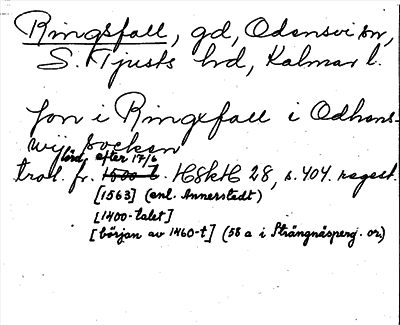 Ringsfall, gd, Odensvi sn,
S. Tjusts hd, Kalmar l.
Jon i Ringxfall i Odhens-
wij socken
lörd. efter 17/6
trol. fr. 1500-t. HSkH 28, s. 404. regest.
[1563] (enl. Annerstedt)
[1400-talet]
[början av 1460-t] (58 a i Strängnäsperg. or.)